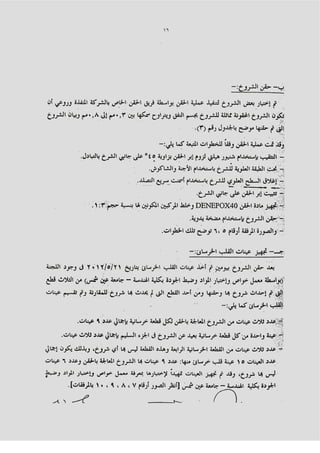 ١٦
ب- حقن الشروخ:-
تم إختبار بعض الشروخ لتنفيذ عملية الحقن بواسطة فريق الحقن الخاص بالشركة المنفذة وروعي أن
تكون الشروخ المحقونة مماثلة للشروخ بجسم النفق ويتراوح سمكها بين ٠,٣مم إلى ٠,٨مم وبيان الشروخ
التي تم حقنها موضح بالجدول رقم (٣).
وقد تمت عملية الحقن وفقاً للخطوات المتبعة كما يلي:-
- التثقيب باستخدام شنيور هيلتي لزوم إبر الحقن بزاوية ٤٥° على جانبي الشرخ بالتبادل.
- نحت الطبقة العلوية للشروخ باستخدام الأجنة والشاكوش.
- إغلاق السطح العلوي للشروخ باستخدام أسمنت سريع التصلد.
- تثبيت إبر الحقن على جانبي الشرخ.
- تجهيز مادة الحقن DENEPOX40 وخلط المركبين المكونين لها بنسبة حجم ٣:١.
- حقن الشروخ باستخدام مضخة يدوية.
- والصورة المرفقة أرقام ٥، ٦ توضح تلك الخطوات.
جـ- تجهيز عينات القلب الخرسانى:-
بعد حقن الشروخ بيومين تم أخذ عينات القلب الخرسانى بتاريخ ٢٠١٢/٥/٢١ فى وجود اللجنة
(بواسطة معمل خواص وإختبار المواد وضبط الجودة بكلية الهندسة – جامعة عين شمس) من الثلاث قطع
التي تم إحداث شروخ بها وحقنها ومن أحد القطع التى لم يحدث بها شروخ للمقارنة وتم تقسيم عينات
القلب الخرسانى كما يلي:-
- عدد ثلاث عينات من الشروخ المعالجة بالحقن لكل قطعة خرسانية بإجمالي عدد ٩ عينات.
- عينة واحدة من كل قطعة خرسانية بعيد عن الشروخ فى الجزء السليم بإجمالي عدد ثلاث عينات.
- عدد ثلاث عينات من القطعة الخرسانية الرابعة وهذه القطعة ليس بها أى شروخ، وبذلك يكون إجمالي
عدد العينات ١٥ عينة قلب خرسانى منها: عدد ٩ عينات بها الشروخ المعالجة بالحقن وعدد ٦ عينات
ليس بها شروخ، وقد تم تجهيز العينات تمهيداً لإختبارها بمعرفة معمل خواص وإختبار المواد وضبط
الجودة بكلية الهندسة – جامعة عين شمس [أنظر الصور أرقام ٧، ٨، ٩، ١٠ بالمرفقات].